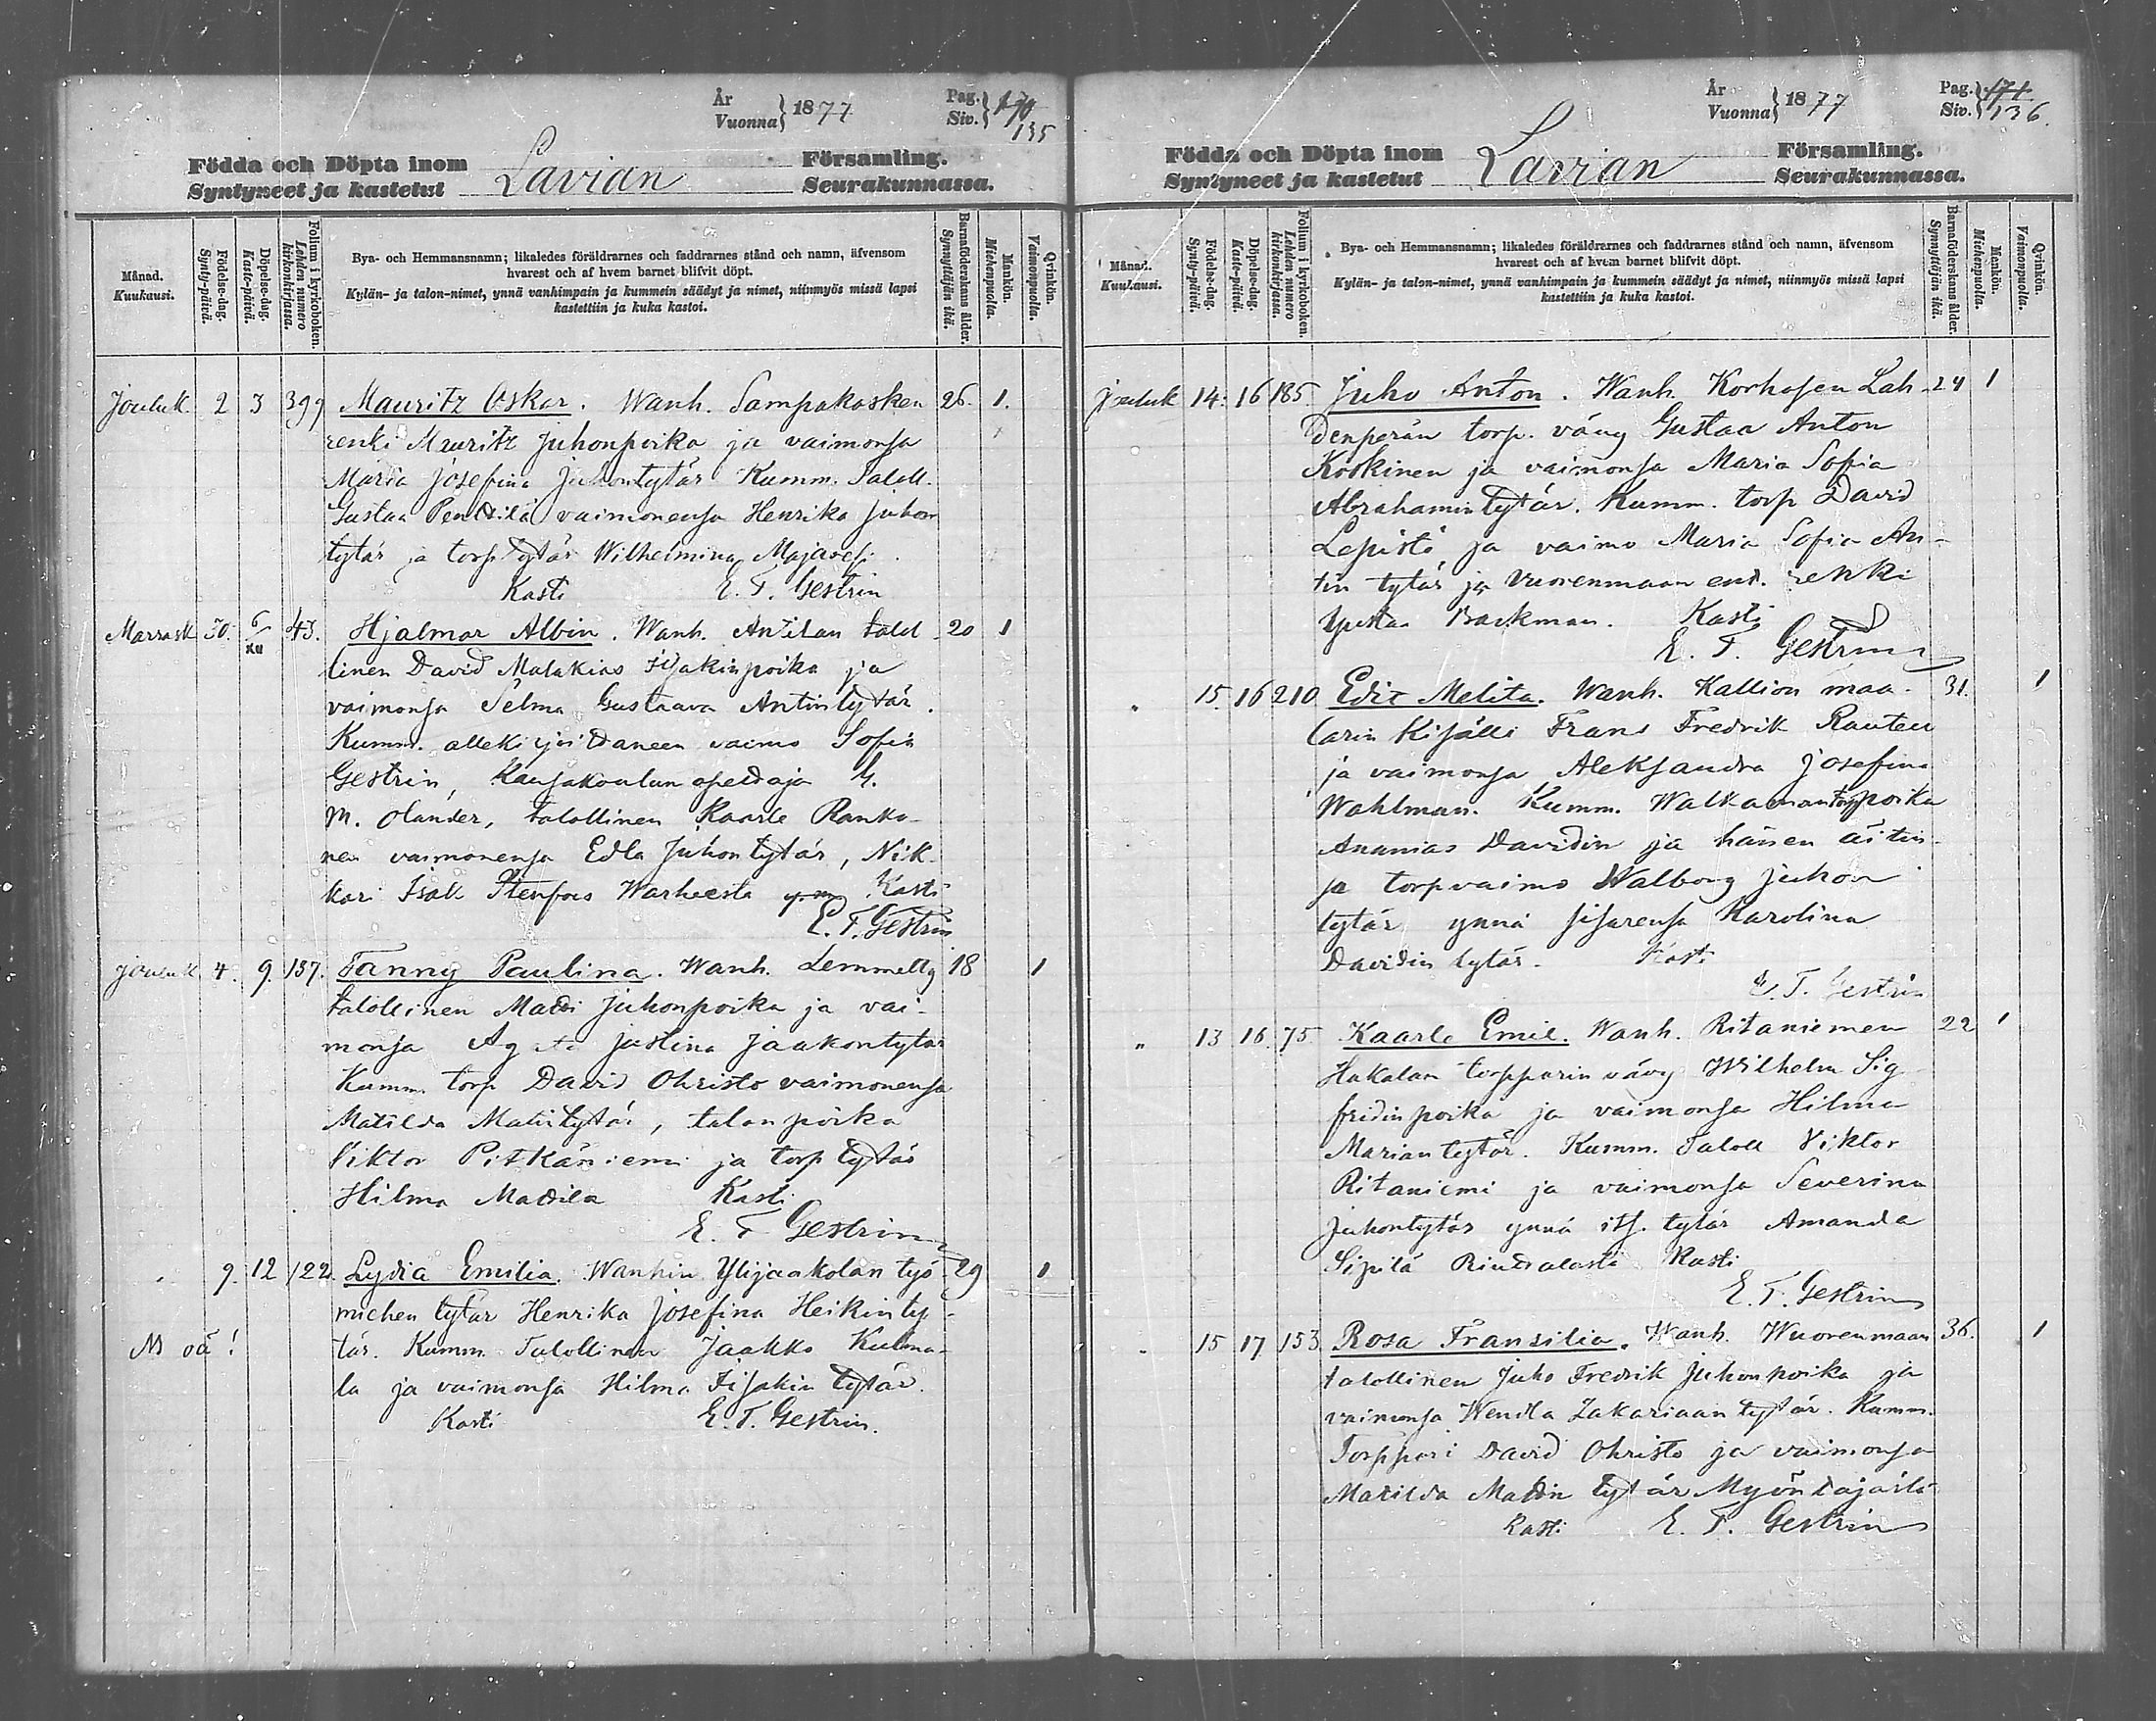 År
Vuonna } 1877
Pag.
Siv. } 170
135
Födda och Döpta inom Lavian Församling.
Syntyneet ja kastetut Seurakunnassa.
Månad. Kuukausi.
Födelse-dag. Synty-päivä.
Döpelse-dag. Kaste-päivä.
Folium i kyrkoboken. Lehden numero kirkonkirjassa.
Bya- och Hemmansnamn; likaledes föräldrarnes och faddrarnes stånd och namn, äfvensom
hvarest och af hvem barnet blifvit döpt.
Kylän- ja talon-nimet, ynnä vanhimpain ja kummein säädyt ja nimet, niinmyös missä lapsi
kastettiin ja kuka kastoi.
Barnaföderskans ålder. Synnyttäjän ikä.
Mankön. Miehenpuolta.
Qvinkön. Vaimonpuolta.
Jouluk. 2 3 399 Mauritz Oskar. Wanh. Sampakosken 26. 1.
renki Mauritz Juhonpoika ja vaimonsa
Maria Josefina Juhontytär Kumm. Taloll.
Gustaa Penttilä vaimonensa Henrika Juhon
tytär ja torp tytär Wilhelmina
Kasti E. F. Gestrin
Marrask 30. 6/XII 43. Hjalmar Albin. Wanh. Anttilan talol 20 1
linen David Malakias Isjakinpoika ja
vaimonsa Selma Gustaava Antintytär.
Kumm. allekirjoittaneen vaimo Sofia
Gestrin, Kansakoulun opettaja G.
M. Olander, talollinen Kaarle Ranka-
nen vaimonensa Edla Juhontytär, Nik-
kari Isak Stenfors Warheesta y.m. Kasti
E. F. Gestrin
Jouluk 4. 9. 137. Fanny Paulina. Wanh. Lemmetty 18 1
talollinen Matti Juhonpoika ja vai-
monsa Agata Justina Jaakontytär
Kumm. torp David Ohristo vaimonensa
Matilda Matintytär, talonpoika
Viktor Pitkäniemi ja torp tytär
Hilma Mattila Kasti
E. F. Gestrin
" 9. 12 122. Lydia Emilia. Wanhin Ylijaakolan työ- 29 1
miehen tytär Henrika Josefina Heikinty-
NB oä! tär. Kumm. Talollinen Jaakko Kulma-
la ja vaimonsa Hilma Iisakin tytär.
Kasti E. F. Gestrin.
År
Vuonna } 1877
Pag.
Siv. } 171
136.
Födda och Döpta inom Lavian Församling.
Syntyneet ja kastetut Seurakunnassa.
Månad. Kuukausi.
Födelse-dag. Synty-päivä.
Döpelse-dag. Kaste-päivä.
Folium i kyrkoboken. Lehden numero kirkonkirjassa.
Bya- och Hemmansnamn; likaledes föräldrarnes och faddrarnes stånd och namn, äfvensom
hvarest och af hvem barnet blifvit döpt.
Kylän- ja talon-nimet, ynnä vanhimpain ja kummein säädyt ja nimet, niinmyös missä lapsi
kastettiin ja kuka kastoi.
Barnaföderskans ålder. Synnyttäjän ikä.
Mankön. Miehenpuolta.
Qvinkön. Vaimonpuolta.
Jouluk 14. 16 185 Juho Anton. Wanh. Korhosen Lah- 24 1
denperän torp. vävy Gustaa Anton
Koskinen ja vaimonsa Maria Sofia
Abrahamintytär. Kumm. torp David
Lepistö ja vaimo Maria Sofia An-
tin tytär ja Vuorenmaan ent. renki
Backman. Kasti
E. F. Gestrin
" 15. 16 210 Edit Melita. Wanh. Kallion maa- 31. 1
larin kisälli Frans Fredrik Rauten
ja vaimonsa Aleksandra Josefina
Wahlman. Kumm. Walkaman torp poika
Ananias Davidin ja hänen äitin-
ja torp vaimo Walborg Juhon
tytär ynnä sisarensa Karolina
Davidin tytär. Kasti
E. F. Gestrin
" 13 16. 75. Kaarle Emil. Wanh. Ritaniemen 22 1
Hakalan torpparin vävy Wilhelm Sig-
fridinpoika ja vaimonsa Hilma
Mariantytär. Kumm. Taloll Viktor
Ritaniemi ja vaimonsa Severina
Juhontytär ynnä its. tytär Amanda
Sipilä Kasti
E. F. Gestrin
" 15 17 153. Rosa Fransilia. Wanh. Wuorenmaan 36. 1
talollinen Juho Fredrik Juhonpoika ja
vaimonsa Wendla Zakariaan tytär. Kumm.
Torppari David Ohristo ja vaimonsa
Matilda Matin tytär Myöntäjästä
Kasti E. F. Gestrin